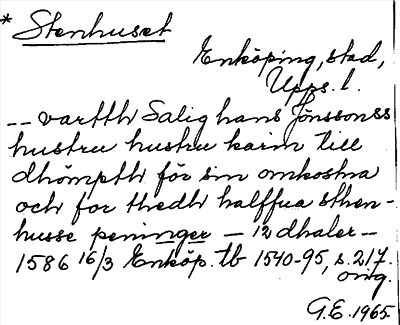 * Stenhuset
Enköping, stad,
Upps. l.
-- vartth Salig hans Jönssonss
hustru hustru karin till
dhömpth för sin omkostna
och for thedh halffua sthen-
husse peninger - 12 dhaler -
1586 16/3 Enköp. tb 1540-95, s. 217.
orig.
G.E. 1965